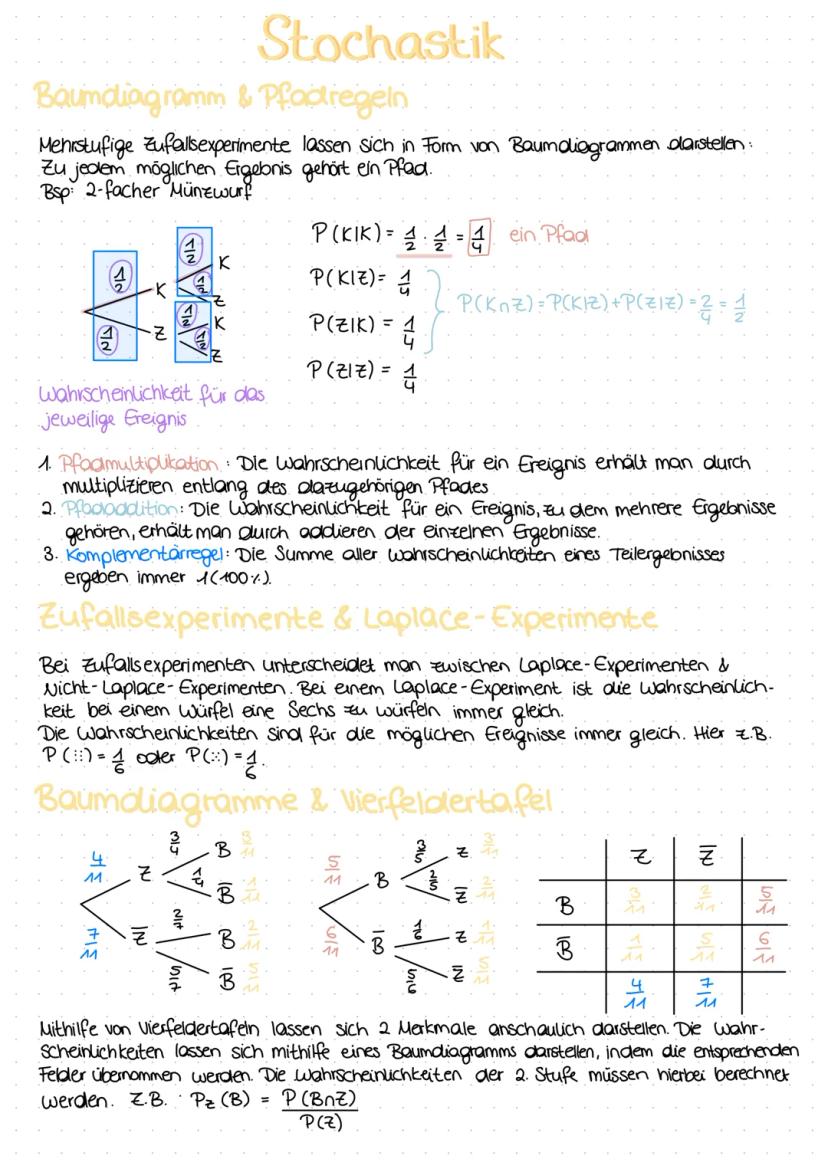 Stochastik
Baumdiagramm & Pfadregeln
Mehrstufige Zufallsexperimente lassen sich in Form von Baumdiagrammen darstellen:
Zu jedem möglichen Ergebnis gehört ein Pfad.
Bsp: 2-facher Münzwurf
1/2 K 1/2 K
1/2 Z
1/2 Z 1/2 K
1/2 Z
P(K|K) = 1/2 · 1/2 = 1/4 ein Pfad
P(K|Z) = 1/4
P(Z|K) = 1/4
P(K∩Z) = P(K|Z) + P(Z|Z) = 2/4 = 1/2
P(Z|Z) = 1/4
Wahrscheinlichkeit für das
jeweilige Ereignis
1. Pfadmultiplikation: Die Wahrscheinlichkeit für ein Ereignis erhält man durch
multiplizieren entlang des dazugehörigen Pfades
2. Pfadaddition: Die Wahrscheinlichkeit für ein Ereignis, zu dem mehrere Ergebnisse
gehören, erhält man durch addieren der einzelnen Ergebnisse.
3. Komplementärregel: Die Summe aller Wahrscheinlichkeiten eines Teilergebnisses
ergeben immer 1 (100%).
Zufallsexperimente & Laplace-Experimente
Bei Zufallsexperimenten unterscheidet man zwischen Laplace-Experimenten &
Nicht-Laplace-Experimenten. Bei einem Laplace-Experiment ist die Wahrscheinlich-
keit bei einem Würfel eine Sechs zu würfeln immer gleich.
Die Wahrscheinlichkeiten sind für die möglichen Ereignisse immer gleich. Hier z.B.
P(⚅) = 1/6 oder P(⚄) = 1/6.
Baumdiagramme & Vierfeldertafel
4/11 Z 3/4 B 3/11
1/4 B̅ 1/11
7/11 Z̅ 2/7 B 2/11
5/7 B̅ 5/11
5/11 B 3/5 Z 3/11
2/5 Z̅ 2/11
6/11 B̅ 1/6 Z 1/11
5/6 Z̅ 5/11
Z Z̅
B 3/11 2/11 5/11
B̅ 1/11 5/11 6/11
4/11 7/11
Mithilfe von Vierfeldertafeln lassen sich 2 Merkmale anschaulich darstellen. Die Wahr-
scheinlichkeiten lassen sich mithilfe eines Baumdiagramms darstellen, indem die entsprechenden
Felder übernommen werden. Die Wahrscheinlichkeiten der 2. Stufe müssen hierbei berechnet
werden. Z.B. P_Z(B) = P(B∩Z)/P(Z)